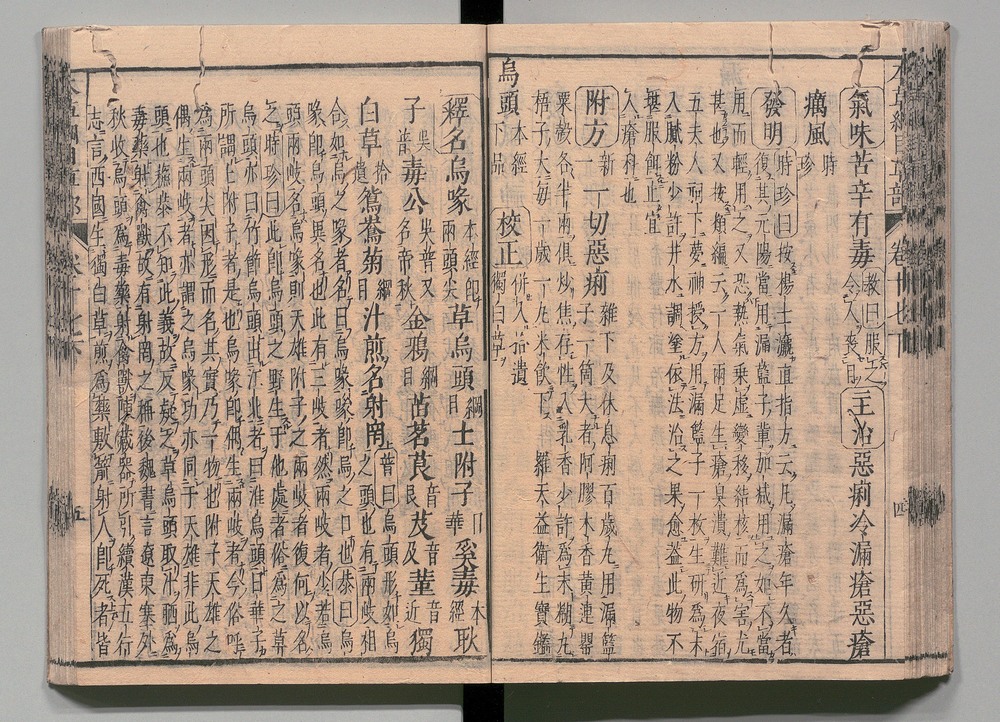 氣味苦辛有毒 斅曰服之令人爽目 主治惡痢冷漏瘡惡瘡
癘風 時珍
發明 時珍曰按楊士瀛直指方云凡漏瘡年久者
復其元陽當用漏籃子輩加減用之如不當
用而輕用之又恐熱氣乘虛變移結核而爲害尤
甚也又按類編云一人兩足生瘡臭潰難近夜宿
五夫人祠下夢神授方用漏籃子一枚生研爲末
入膩粉少許井水調塗依法治之果愈蓋此物不
堪服餌止宜
入瘡科也
附方 新一 一切惡痢 雜下及休息痢百歲丸用漏籃
子一箇大者阿膠木香黃連罌
粟殼各半兩俱炒焦存性入乳香少許爲末糊丸
梧子大每一歲一丸米飲下 羅天益衛生寶鑑
烏頭 本經下品 校正 併入拾遺獨白草
釋名烏喙 本經即兩頭尖 草烏頭 綱目 土附子 日華 奚毒 本經 耿
子 吳普 毒公 吳普又名帝秋 金鴉 綱目 苦 茗 茛 音艮 芨 音及 菫 音近 獨
白草 拾遺 鴛鴦菊 綱目 汁煎名射罔 普曰烏頭形如烏
之頭也有兩歧相
合如烏之喙者名曰烏喙喙即烏之口也恭曰烏
喙即烏頭異名也此有三歧者然兩歧者少若烏
頭兩歧者名烏喙則天雄附子之兩歧者復何以名
之時珍曰此即烏頭之野生于他處者俗爲之草
烏頭亦曰竹節烏頭出江北者曰淮烏頭日華子
所謂土附子者是也烏喙即偶生兩歧者今俗呼
爲兩頭尖因形而名其實乃一物也附子天雄之
偶生兩歧者亦謂之烏喙功亦同于天雄非此烏
頭也蘇恭不知此義故反疑之草烏頭取汁晒爲
毒藥射禽獸故有射罔之稱後魏書言遼東塞外
秋收烏頭爲毒藥射禽獸陳藏器所引續漢五行
志言西國生獨白草煎爲藥敷箭射人即死者皆